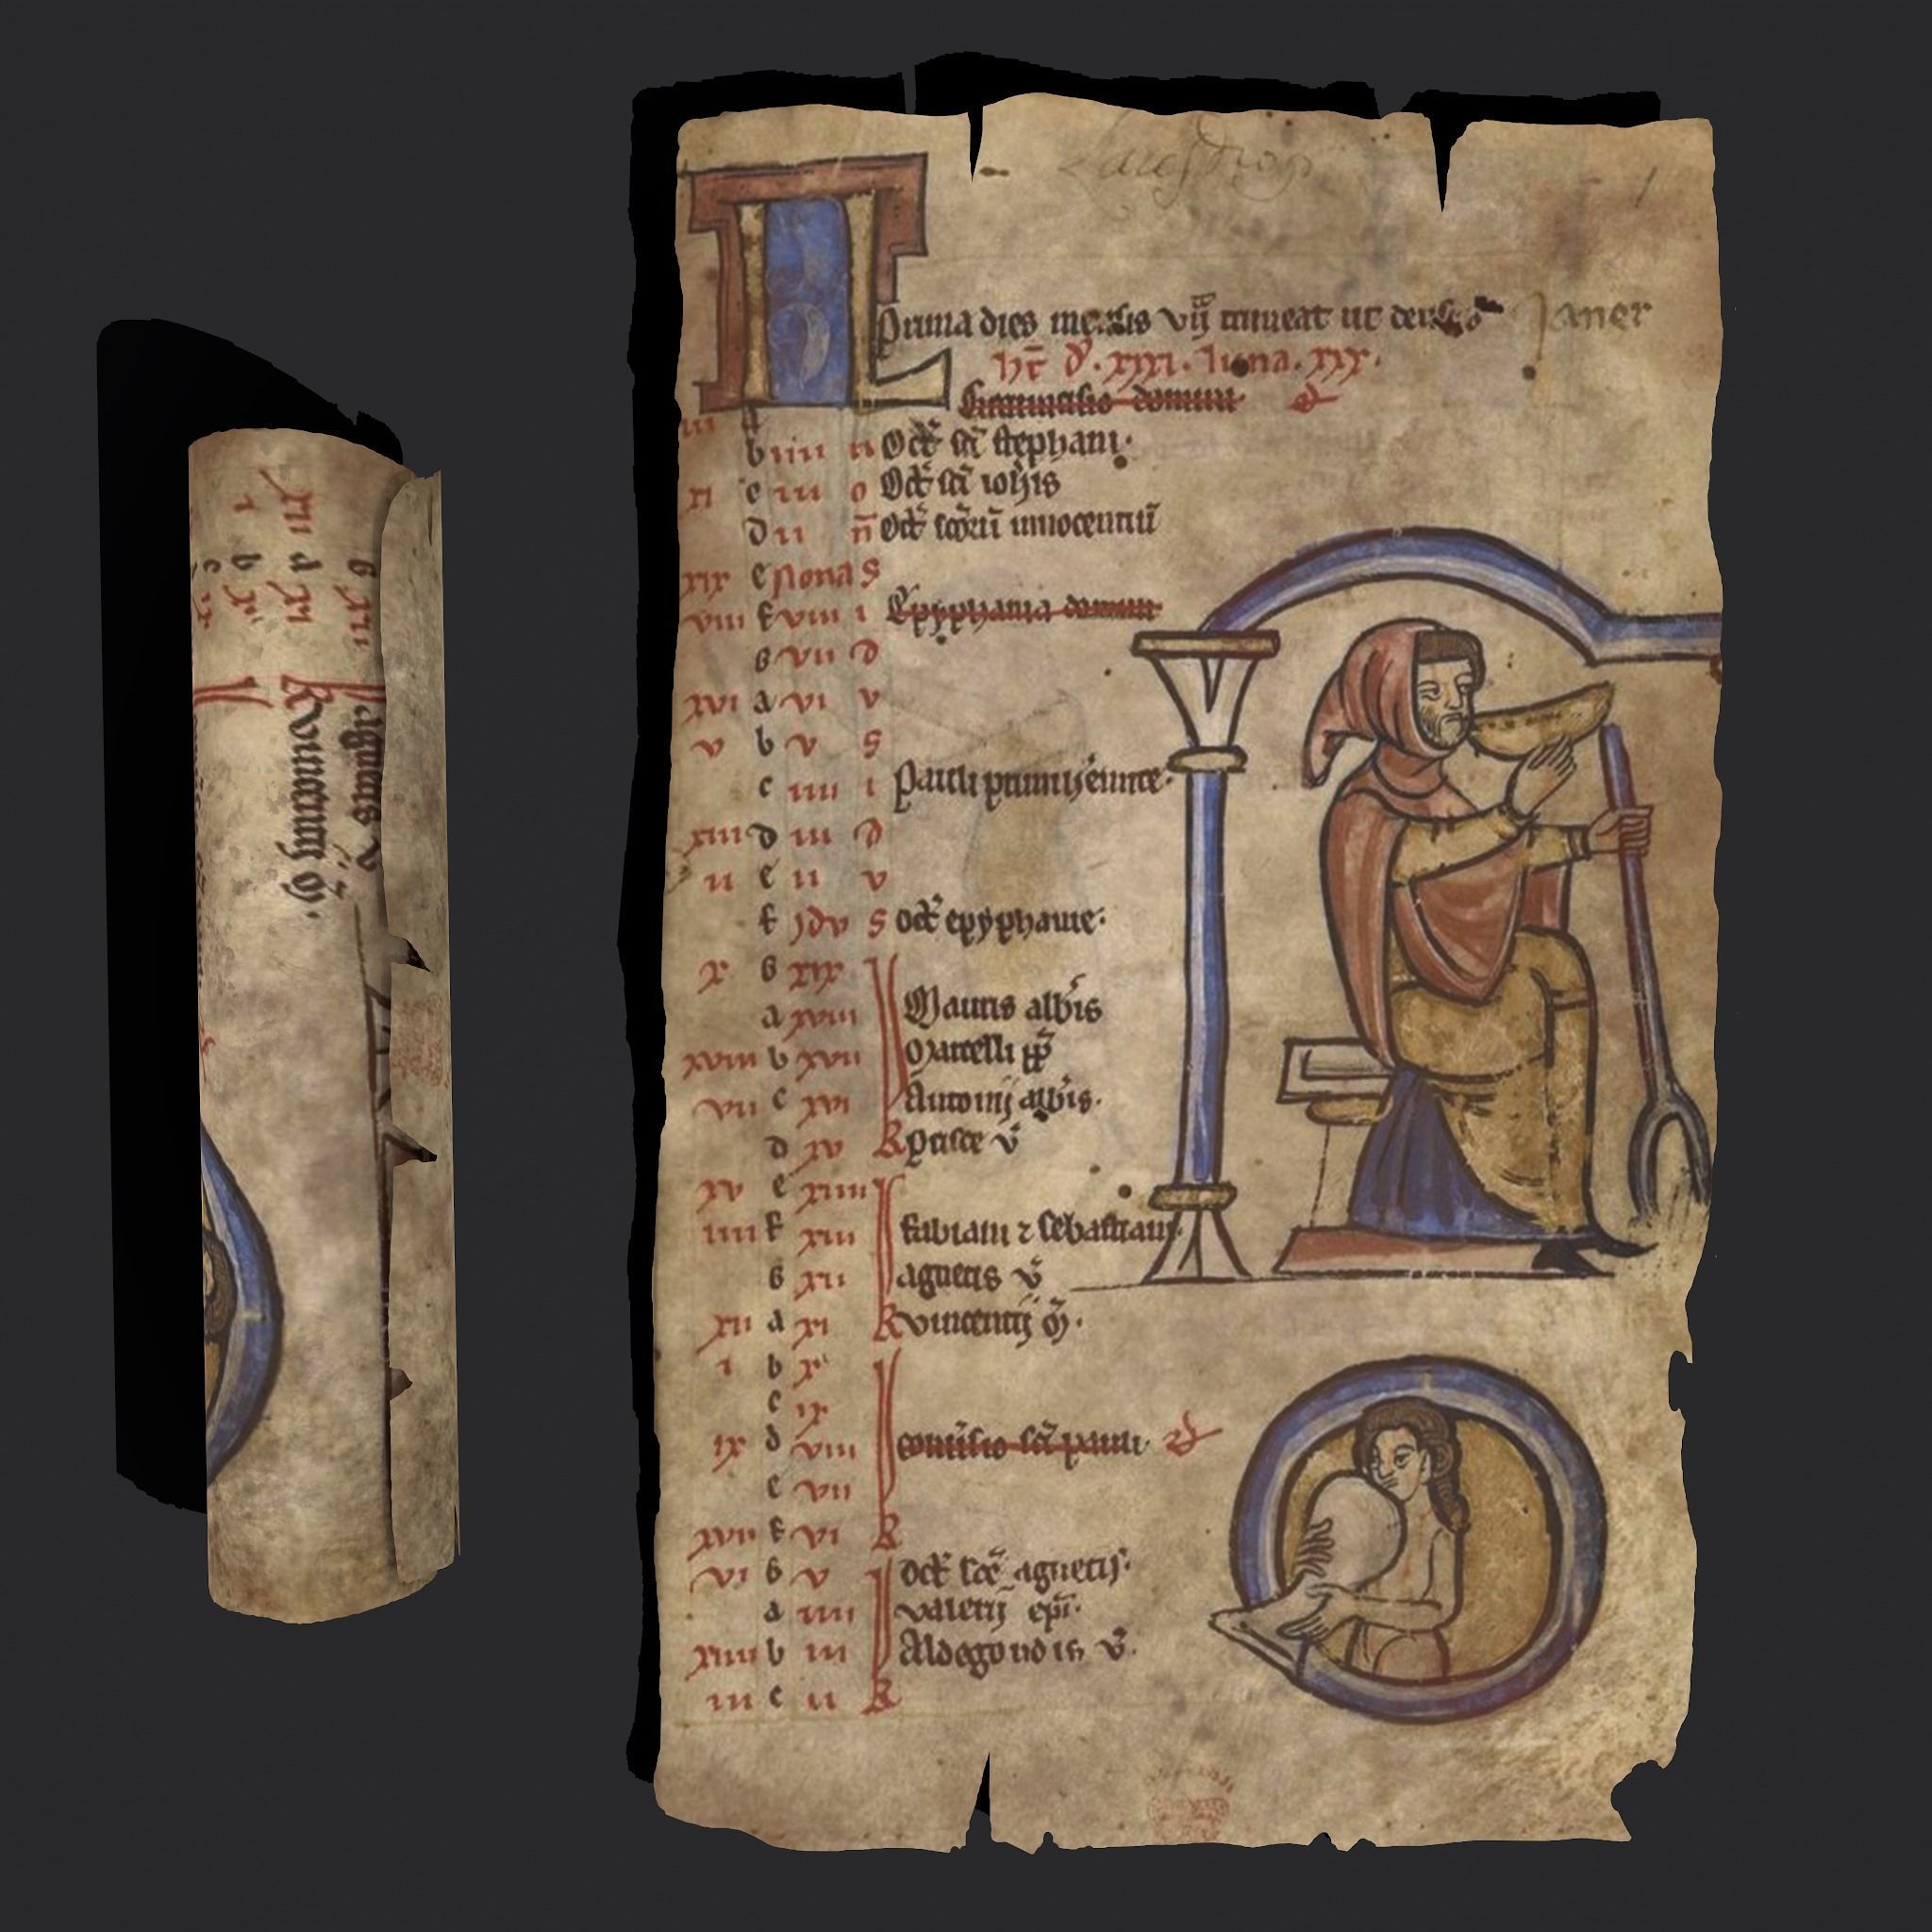 KL
Prima dies mensis vij timeat ut
Janer
ht d. xxxi. luna. xxx.
iii a Circumcisio domini
b iiii n Oct sci stephani.
xi c iii o Oct sci iohis
d ii n Oct scoru innocentiu
xix e Nonas
viii f viii i Epyphania domini
g vii d
xvi a vi v
v b v s
c iiii i Pauli primi
xiii d iii d
ii e ii v
f jdv s oct epyphanie.
x g xix
a xviii Mauris abbis
xviii b xvii Marcelli pp
vii c xvi Antonij abbis.
d xv K prisce v
xv e xiiii
iiii f xiii fabiani ⁊ sebastiani
g xii agnetis v
xii a xi K vincentij m.
i b x
c ix
ix d viii conusio sci pauli
e vii
xvii f vi K
vi g v oct sce agnetis.
a iiii valerij epi.
xiiii b iii Aldegondis v.
iii c ii K